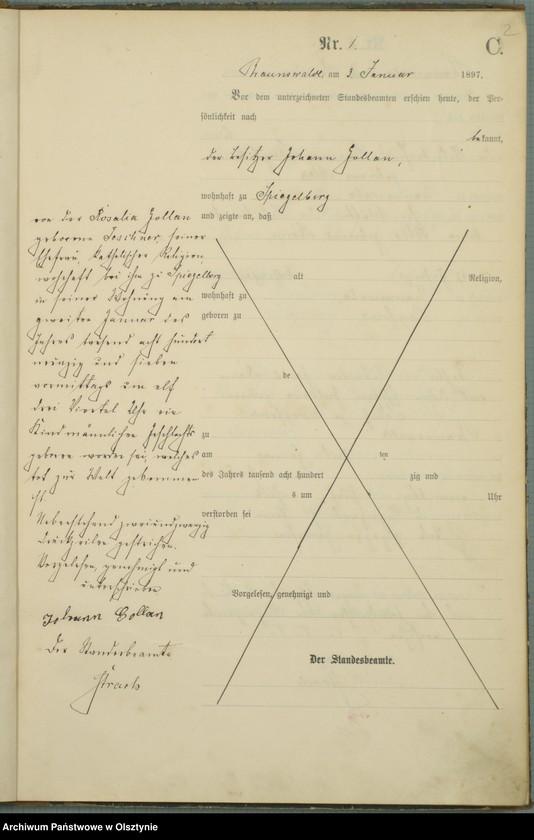 2
Nr. 1.
C.
Braunswalde, am 3. Januar 1897.
Vor dem unterzeichneten Standesbeamten erschien heute, der Per-
sönlichkeit nach
bekannt,
der Besitzer Johann Gollan,
wohnhaft zu Spiegelberg
und zeigte an, daß
von der Rosalia Gollan
geborene seiner
Ehefrau, katholischer Religion,
wohnhaft bei ihm zu Spiegelberg
in seiner Wohnung am
zweiten Januar des
Jahres tausend acht hundert
neunzig und sieben
vormittags um elf
drei Viertel Uhr ein
Kind männlichen Geschlechts
geboren worden sei, welches
tot zur Welt gekommen
ist.
Nebenstehend zweiundzwanzig
Druckzeilen gestrichen.
Vorgelesen, genehmigt und
unterschrieben
Johann Gollan
Der Standesbeamte
alt
Religion,
wohnhaft zu
geboren zu
de
zu
am ten
des Jahres tausend acht hundert zig und
s um Uhr
verstorben sei
Vorgelesen, genehmigt und
Der Standesbeamte.
Archiwum Państwowe w Olsztynie